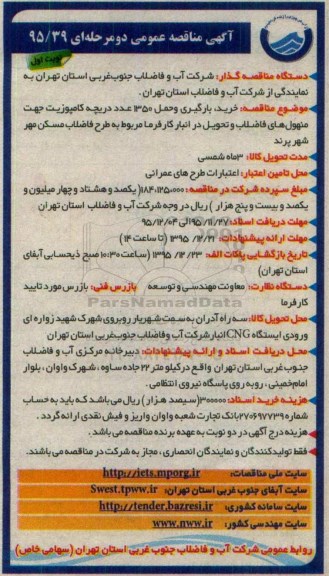 آگهی مناقصه عمومی دومرحله‌ای ۹۵/۳۹
نوبت اول
دستگاه مناقصه گذار: شرکت آب و فاضلاب جنوب‌غربی استان تهران به
نمایندگی از شرکت آب و فاضلاب استان تهران.
موضوع مناقصه: خرید، بارگیری وحمل ۱۳۵۰ عدد دریچه کامپوزیت جهت
منهول‌های فاضلاب و تحویل در انبار کارفرما مربوط به طرح فاضلاب مسکن مهر
شهر پرند
مدت تحویل کالا: ۳ماه شمسی
محل تامین اعتبار: اعتبارات طرح های عمرانی
مبلغ سپرده شرکت در مناقصه: ۱۸۴،۱۲۵،۰۰۰( یکصد و هشتاد و چهار میلیون و
یکصد و بیست و پنج هزار ) ریال در وجه شرکت آب و فاضلاب استان تهران
مهلت دریافت اسناد: ۹۵/۱۱/۲۷الی ۹۵/۱۲/۰۴
مهلت ارائه پیشنهادات: ۱۳۹۵/۱۲/۲۱ (تا ساعت ۱۴ )
تاریخ بازگشایی پاکات الف: ۱۳۹۵ /۱۲ /۲۳ (ساعت۱۰:۳۰ صبح ذیحسابی آبفای
استان تهران)
دستگاه نظارت: معاونت مهندسی و توسعه بازرس فنی: بازرس مورد تایید
کارفرما
محل تحویل کالا: سه راه آدران به سمت شهریار روبروی شهرک شهید زواره ای
ورودی ایستگاه CNG انبار شرکت آب وفاضلاب جنوب‌غربی استان تهران
محل دریافت اسناد و ارائه پیشنهادات: دبیرخانه مرکزی آب و فاضلاب
جنوب غربی استان تهران واقع در کیلو متر ۲۲ جاده ساوه ، شهرک واوان ، بلوار
امام‌خمینی ، روبه روی پاسگاه نیروی انتظامی .
هزینه خرید اسناد: ۳۰۰۰۰۰(سیصد هزار ) ریال می باشد که باید به حساب
شماره ۲۷۰۶۹۷۷۳۹بانک تجارت شعبه واوان واریز و فیش نقدی ارائه گردد .
هزینه درج آگهی در دو نوبت به عهده برنده مناقصه می باشد .
فقط تولیدکنندگان و نمایندگان انحصاری ، مجاز به شرکت در مناقصه می باشند.
سایت ملی مناقصات: http://iets.mporg.ir
سایت آبفای جنوب غربی استان تهران: Swest.tpww.ir
سایت سامانه کشوری: http://tender.bazresi.ir
سایت مهندسی کشور: www.nww.ir
روابط عمومی شرکت آب و فاضلاب جنوب غربی استان تهران (سهامی خاص)